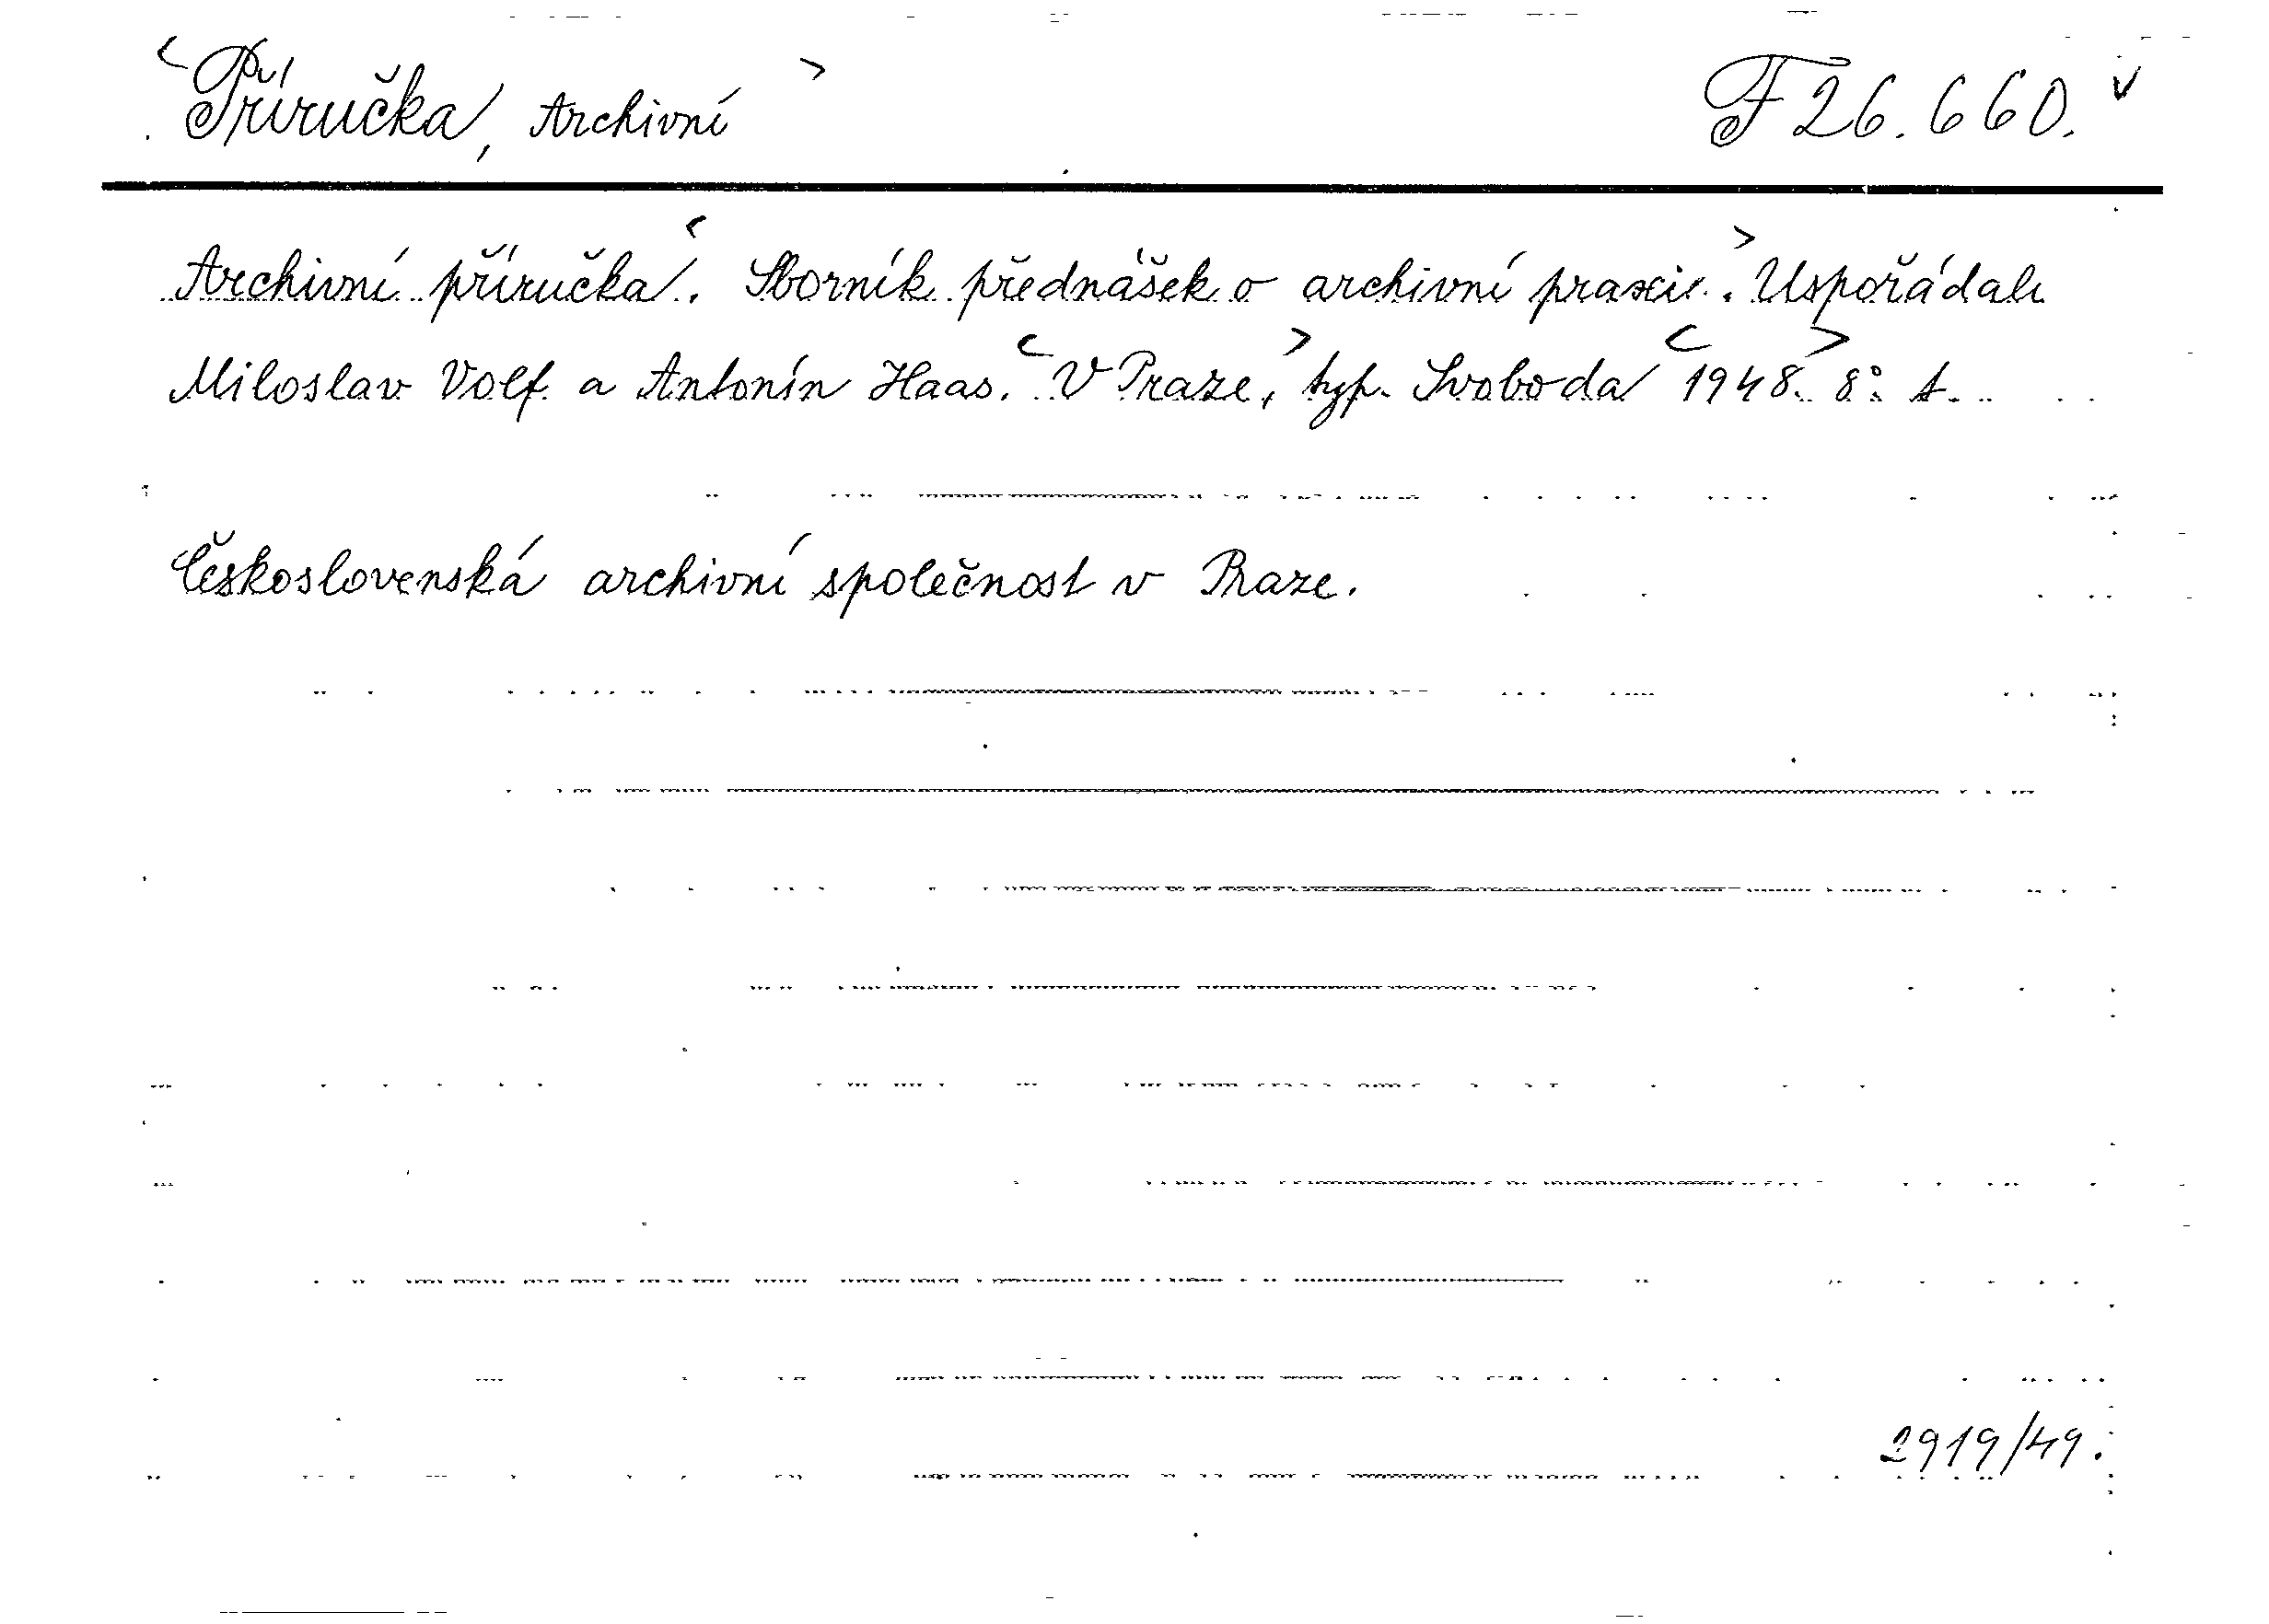 Příručka, Archivní F 26.660.
Archivní příručka. Sborník přednášek o archivní praxi. Uspořádali
Miloslav Volf a Antonín Haas. V Praze, typ. Svoboda 1948. 8° s.
Československá archivní společnost v Praze.
2919/49.